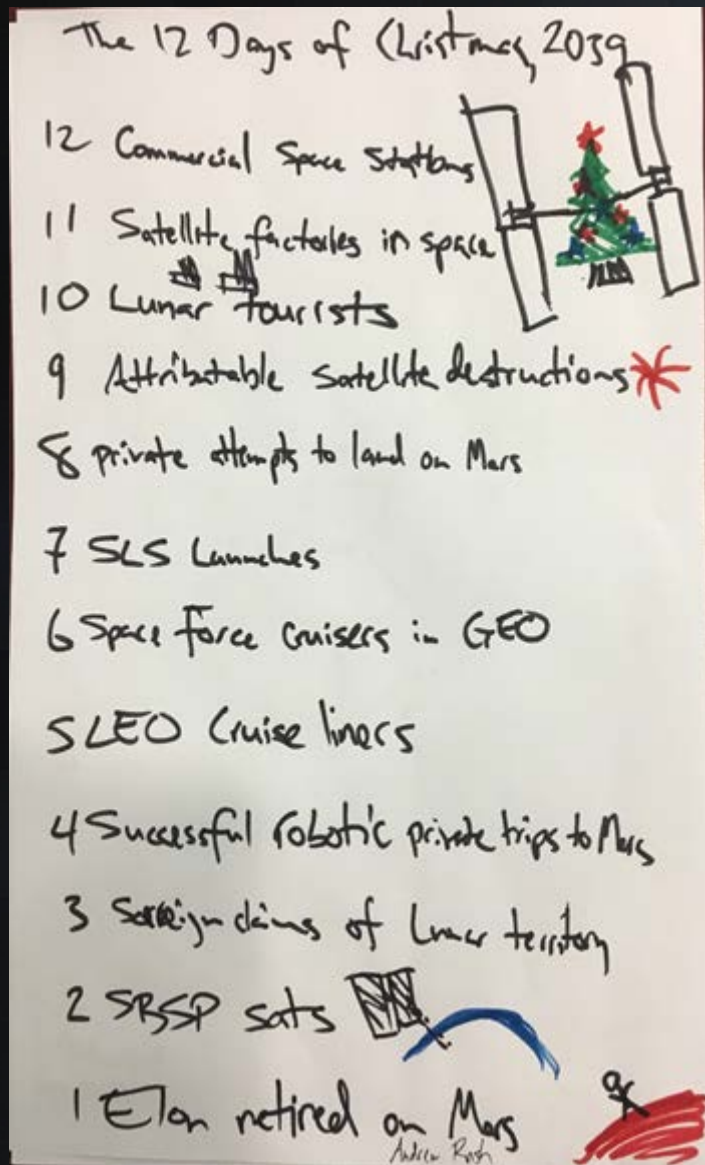 The 12 Days of Christmas, 2039
12 Commercial Space Stations
11 Satellite factories in space
10 Lunar tourists
9 Attributable satellite destructions
8 private attempts to land on Mars
7 SLS Launches
6 Space Force cruisers in GEO
5 LEO Cruise liners
4 Successful robotic private trips to Mars
3 claims of Lunar territory
2 SBSP sats
1 Elon retired on Mars
Andrew Rush